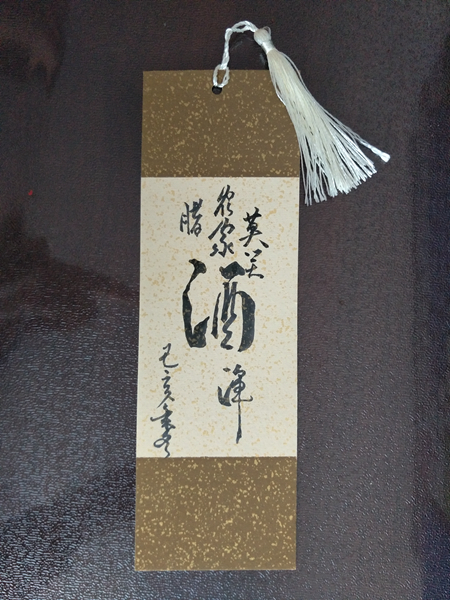 莫笑
农家
腊
酒
浑
己亥